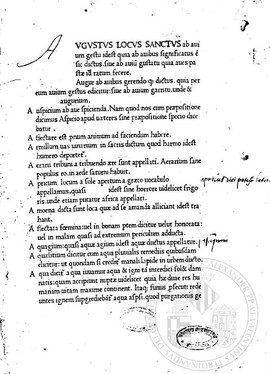 AVGVSTVS LOCVS SANCTVS ab aui
um gestu idest quia ab auibus significatus e
sic dictus. siue ab auiū gustatu quia aues pa
stæ id ratum fecere.
Augur ab auibus gerendo qͥ dictus. quia per
eum auium gestus edicitur. siue ab auium garritu. unde &
augurium.
Auspicium ab aue spicienda. Nam quod nos cum præpositione
dicimus Aspicio apud ueteres sine præpositione specio dice
batur.
Affectare est pnum animum ad faciendum habere.
Armillum uas uinarium in sacris dictum quod armo idest
humero deportet
Aerarii tribuni a tribuendo ære sunt appellati. Aerarium sane
populus ro. in æde saturni habuit.
Apricum locum a sole apertum a græco uocabulo
appellamus. quasi idest sine horrore uidelicet frigo
ris. unde etiam putatur africa appellari.
Amœna dicta sunt loca quæ ad se amanda alliciant idest tra
hant.
Affectata fœmina uel in bonam ptem dicitur uelut honorata:
uel in malam quasi ad extremum periculum adducta.
Aquagium: quasi aquæ agium idest aquæ ductus appellatur.
Aqualitium dicitur cum aqua pluuialis remediis quibusdam
elicitur: ut quondam si credit manali lapide in urbem ducto.
Aqua dicit a qua iuuamur
aqua & igni tā interdici solet dam
natis: quam accipiunt nuptæ uidelicet quia hæ duæ res hu
manam uitam maxime continent. Itaq; funus psecuti rede
untes ignem supgrediebant aqua aspsi. quod purgationis ge